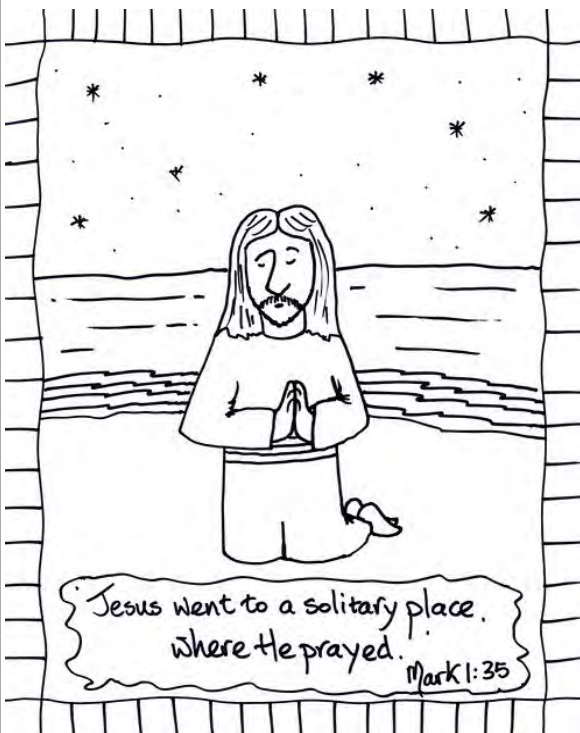 Jesus went to a solitary place.
where He prayed.
Mark 1:35